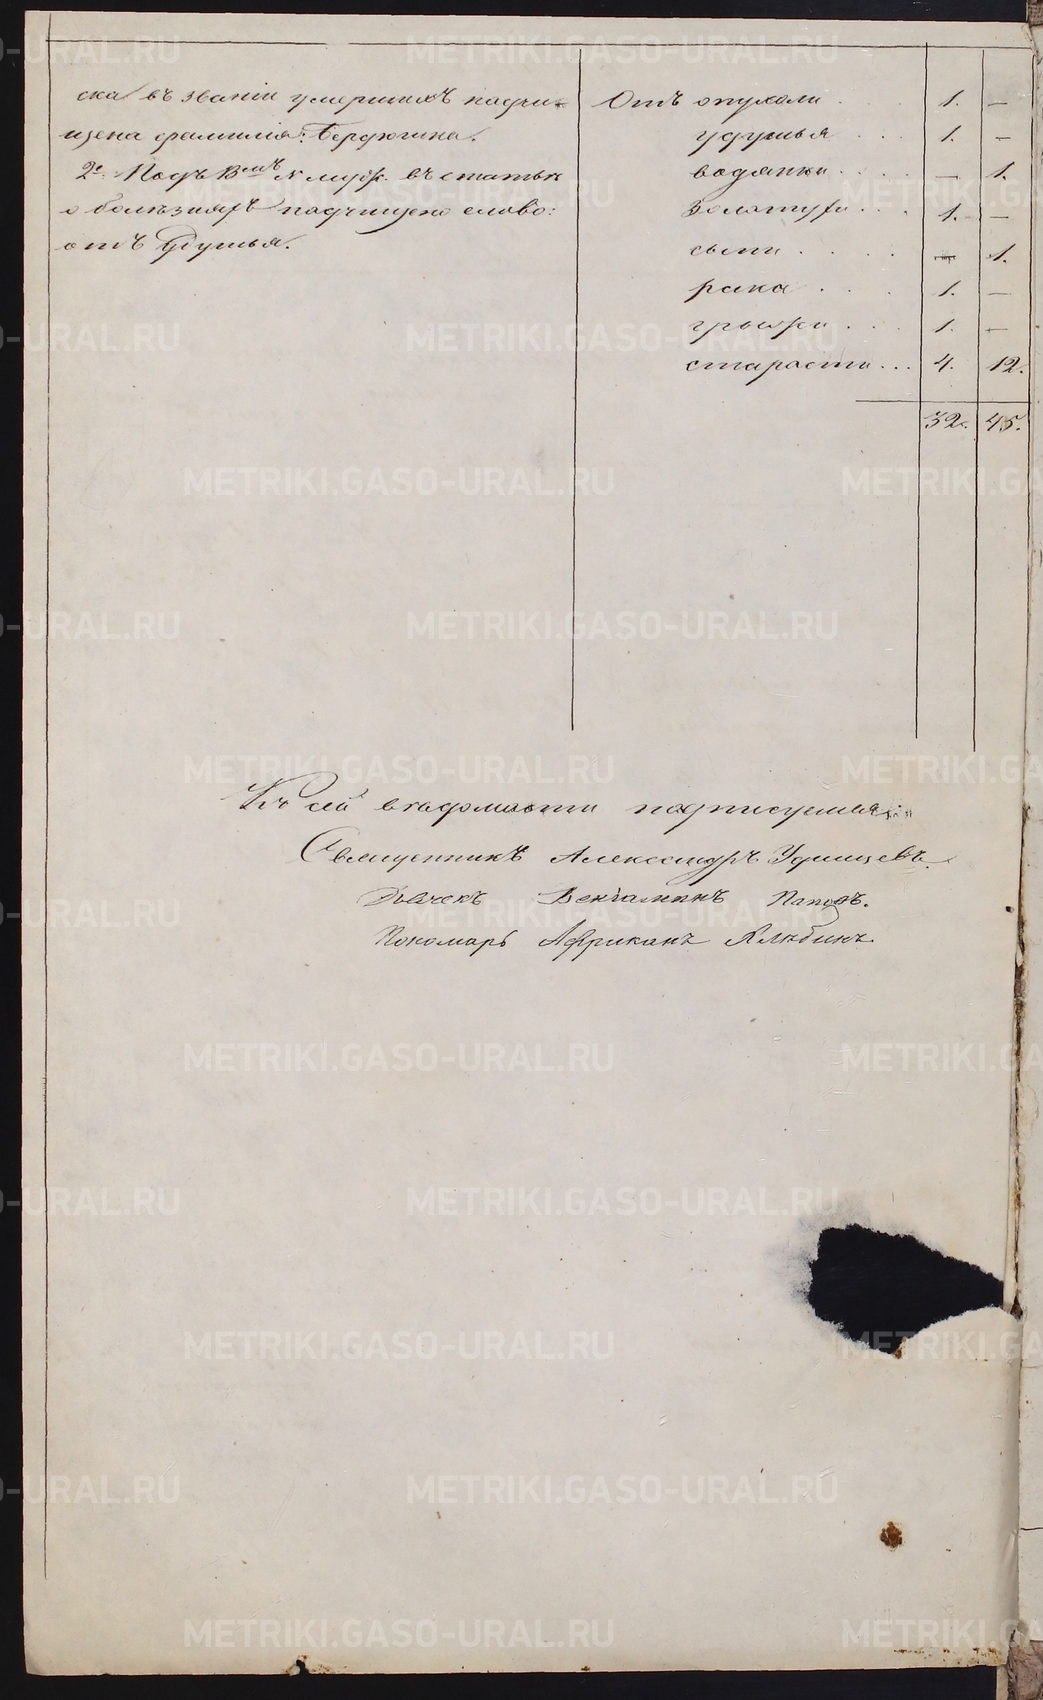 ска въ званіи умершихъ подчи-
щена фамилія: Бердюгина.
2е. Подъ 13мъ N муж. въ статьѣ
о болѣзняхъ подчищено слово:
отъ удушья.
Отъ опухоли . . . 1. —
удушья . . . 1. —
водянки . . . . — 1.
золотухи . . . 1. —
сыпи . . . . — 1.
рака . . . 1. —
грыжи . . . 1. —
старости . . . 4. 12.
32. 45.
Къ сей вѣдомости подписуемся:
Священникъ Александръ Удинцевъ.
Дьячекъ Веніаминъ Поповъ.
Пономарь Африканъ
METRIKI.GASO-URAL.RU